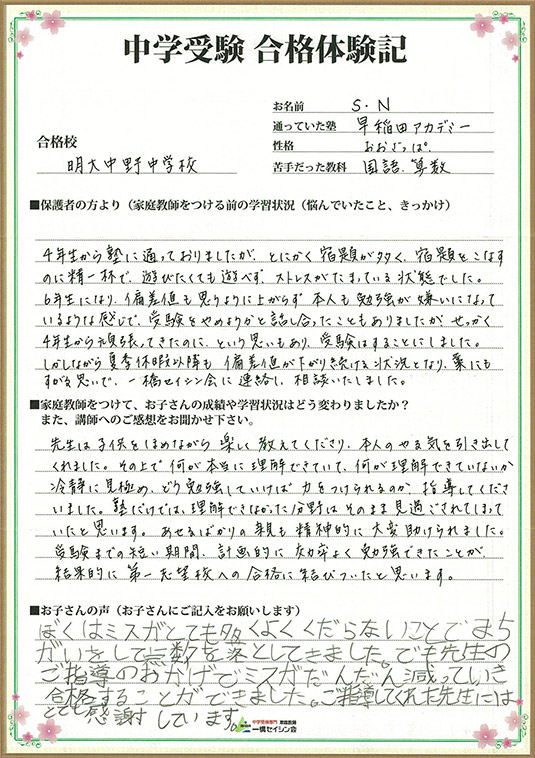 中学受験 合格体験記
お名前 S・N
通っていた塾 早稲田アカデミー
合格校
性格 おおざっぱ.
明大中野中学校
苦手だった教科 国語.算数
■保護者の方より（家庭教師をつける前の学習状況（悩んでいたこと、きっかけ）
4年生から塾に通っておりましたが、とにかく宿題が多く、宿題をこなす
のに精一杯で、遊びたくても遊べず、ストレスがたまっている状態でした。
6年生になり、偏差値も思うように上がらず本人も勉強が嫌いになって
いるような感じで、受験をやめようかと話し合ったこともありましたが、せっかく
4年生から頑張ってきたのに、という思いもあり、受験はすることにしました。
しかしながら夏季休暇以降も偏差値が下がり続ける状況となり、藁にも
すがる思いで、一橋セイシン会に連絡し、相談いたしました。
■家庭教師をつけて、お子さんの成績や学習状況はどう変わりましたか？
また、講師へのご感想をお聞かせ下さい。
先生は子供をほめながら楽しく教えてくださり、本人のやる気を引き出して
くれました。その上で何が本当に理解できていて、何が理解できていないか
冷静に見極め、どう勉強していけば力をつけられるのか、指導してくださ
いました。塾だけでは、理解できなかった分野はそのまま見過ごされてしまって
いたと思います。あせるばかりの親も精神的に大変助けられました。
受験までの短い期間、計画的に効率よく勉強できたことが、
結果的に第一志望校への合格に結びついたと思います。
■お子さんの声（お子さんにご記入をお願いします）
ぼくはミスがとても多くよくくだらないことでまち
がいをして点数を落としてきました。でも先生の
ご指導のおかげでミスがだんだん減っていき
合格することができました。ご指導してくれた先生には
とても感謝しています。
中学受験専門 家庭教師
一橋セイシン会